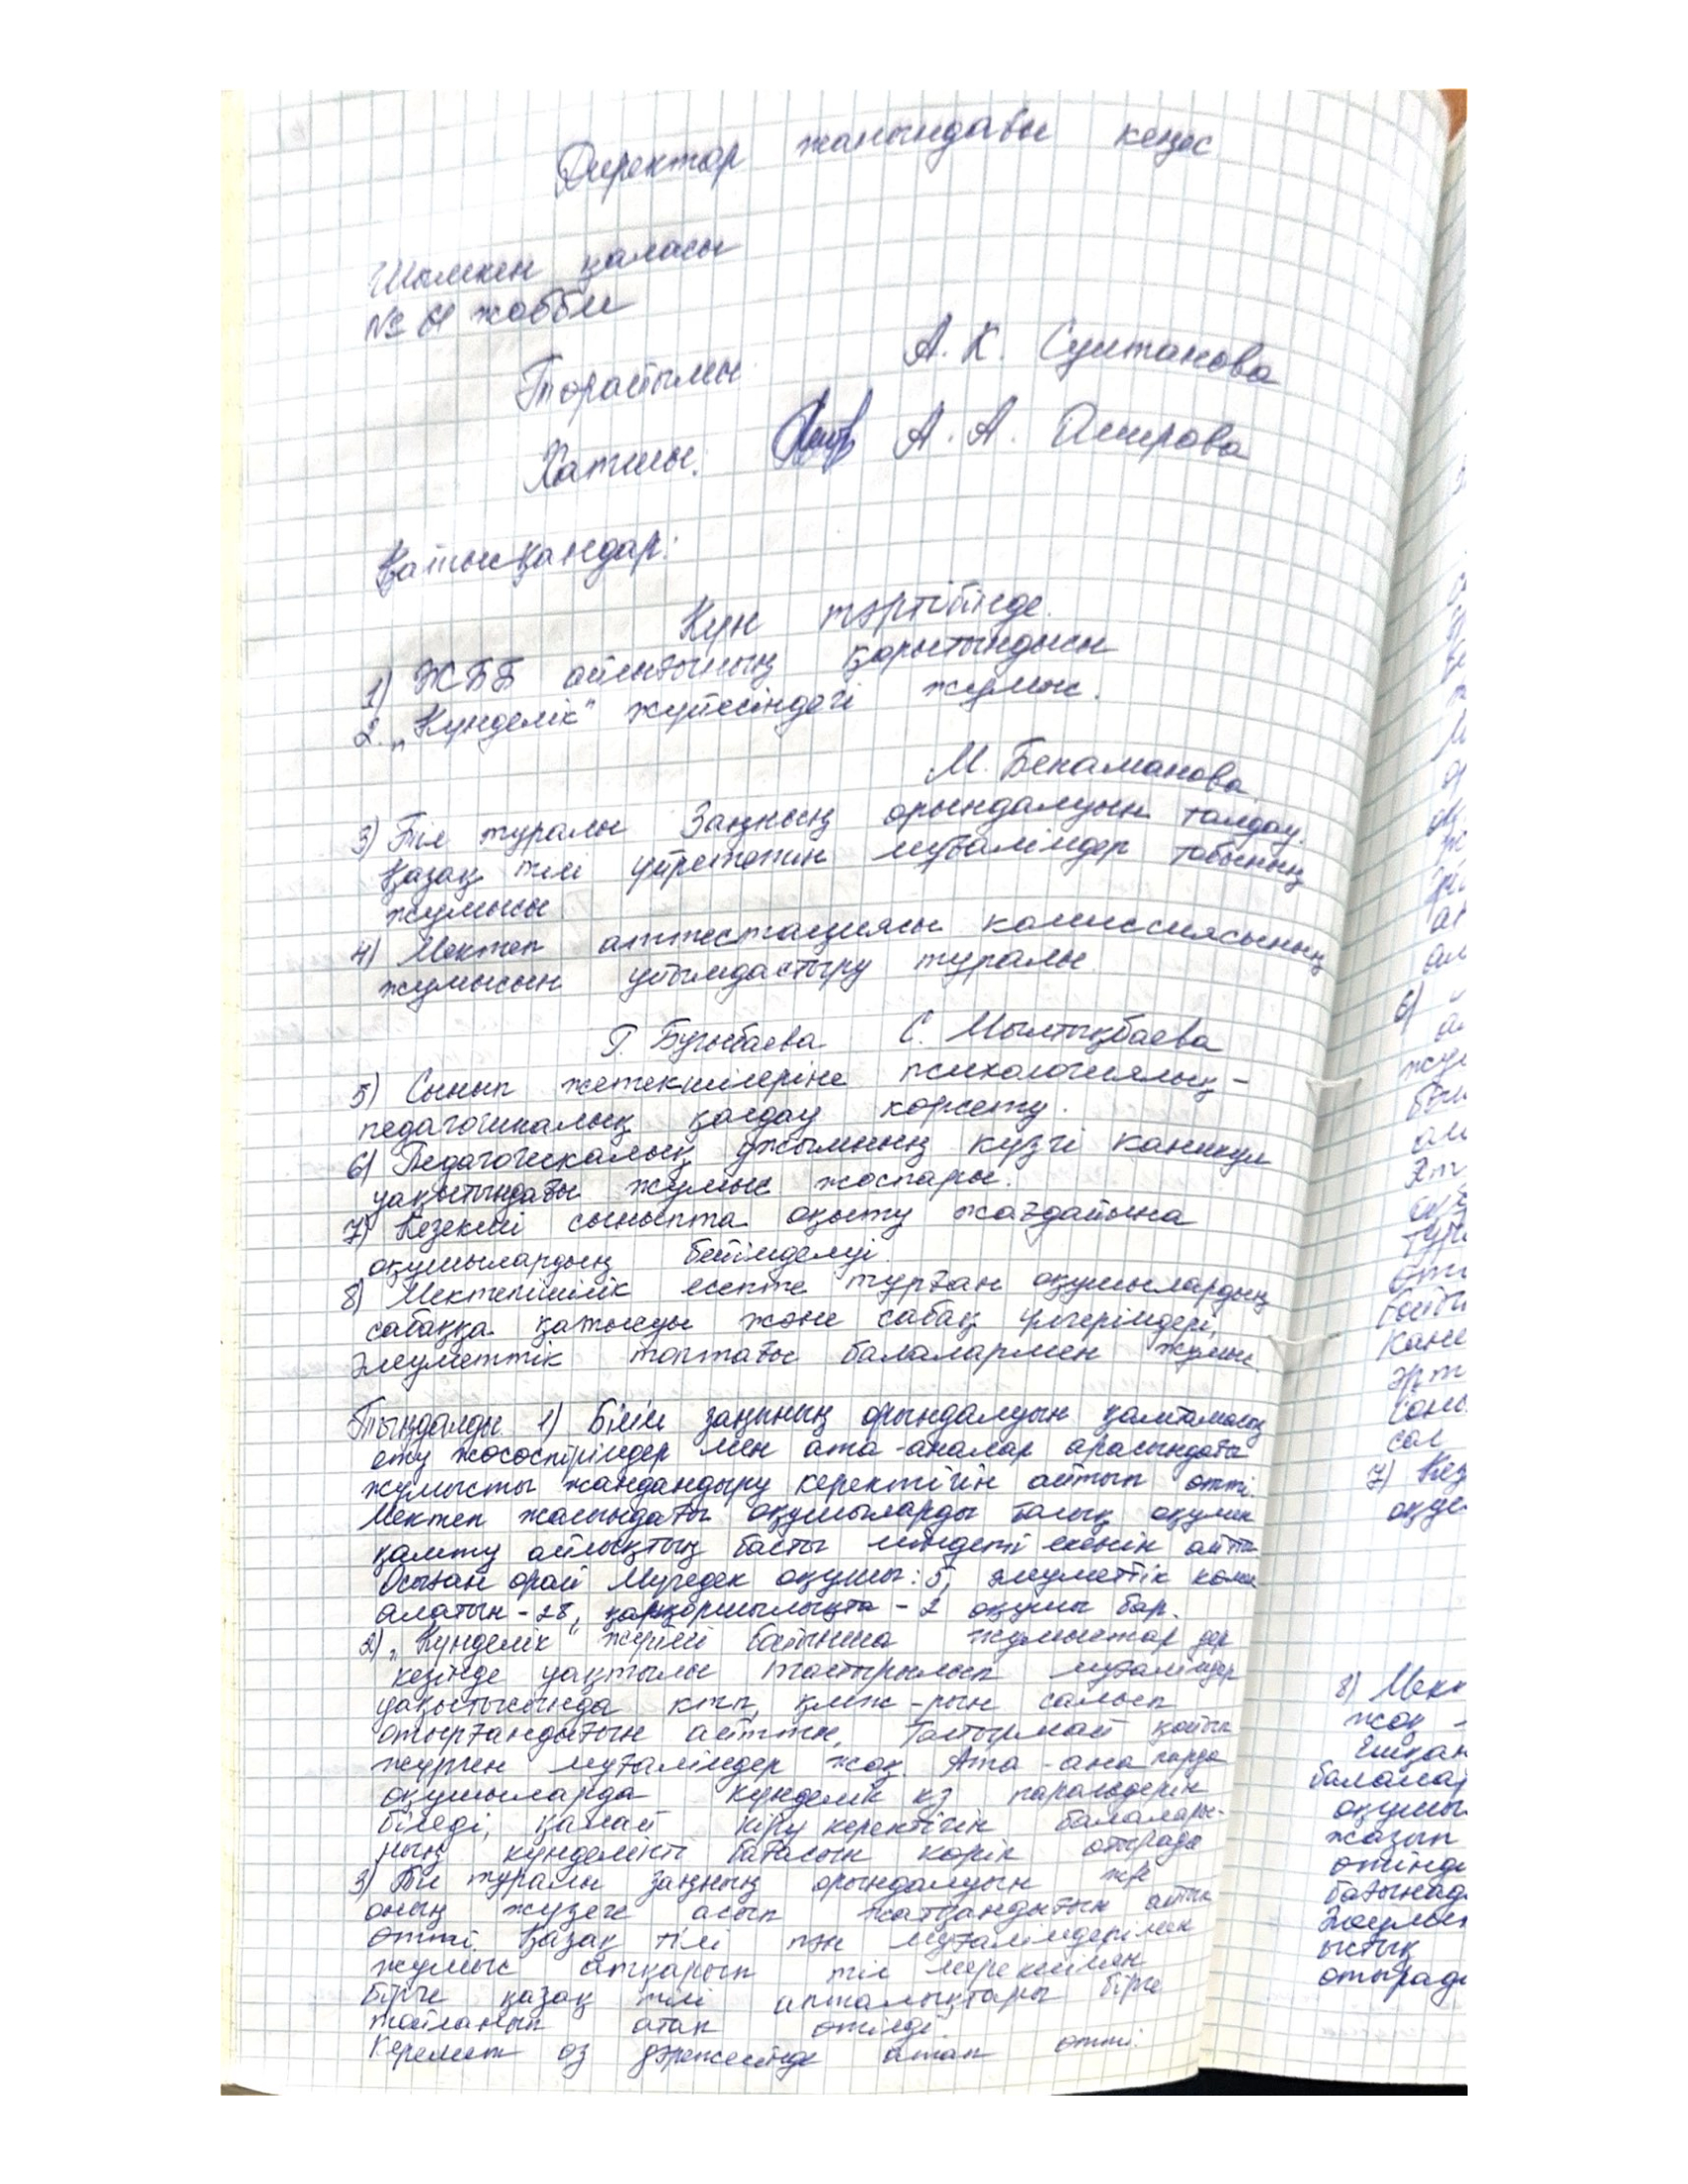 Директор жанындағы кеңес
Шымкен қаласы
№ 61 жоббм
Төрайымы: А. К. Султанова
Хатшы: А. А. Аширова
Қатысқандар:
Күн тәртібінде.
1) ЖББ айлығының қорытындысы
2. „Күнделік" жүйесіндегі жұмыс.
М. Бекаманова.
3) Тіл туралы Заңның орындалуын талдау.
Қазақ тілі үйрететін мұғалімдер тобының
жұмысы
4) Мектеп аттестациясы комиссиясының
жұмысын ұйымдастыру туралы
Г. Бугыбаева С. Мылтықбаева
5) Сынып жетекшілеріне психологиялық-
педагогикалық қолдау көрсету.
6) Педагогикалық ұжымның күзгі каникул
уақытындағы жұмыс жоспары.
7) Кезекші сыныпта оқыту жағдайына
оқушылардың бейімделуі.
8) Мектепішілік есепте тұрған оқушылардың
сабаққа қатысуы және сабақ үлгерімдері,
әлеуметтік топтағы балалармен жұмыс.
Тыңдалды 1) Білім заңының орындалуын қамтамасыз
ету жөсөспірімдер мен ата-аналар арасындағы
жұмысты жандандыру керектігін айтып өтті.
Мектеп жасындағы оқушыларды толық оқумен
қамту айлықтың басты міндеті екенін айтты
Осыған орай Мүгедек оқушы: 5, әлеуметтік көмек
алатын - 28, қамқоршылықта - 2 оқушы бар.
2) „Күнделік" жүйесі бойынша жұмыстар дер
кезінде уақтылы тапсырылып мұғалімдер
уақытысында ктп, қмж-рын салып
отырғандығын айтты, толтырмай қойып
жүрген мұғалімдер жоқ. Ата-аналарда
оқушыларда күнделік кз парольдерін
біледі, қалай кіру керектігін балалары-
ның күнделікті бағасын көріп отырады
3) Тіл туралы заңның орындалуын және
оның жүзеге асып жатқандығын айтып
өтті. Қазақ тілі пән мұғалімдерімен
жұмыс атқарып тіл мерекесімен
бірге қазақ тілі апталықтары бірге
тойланып аталып өтілді.
Керемет өз дәрежесінде атап өтті.